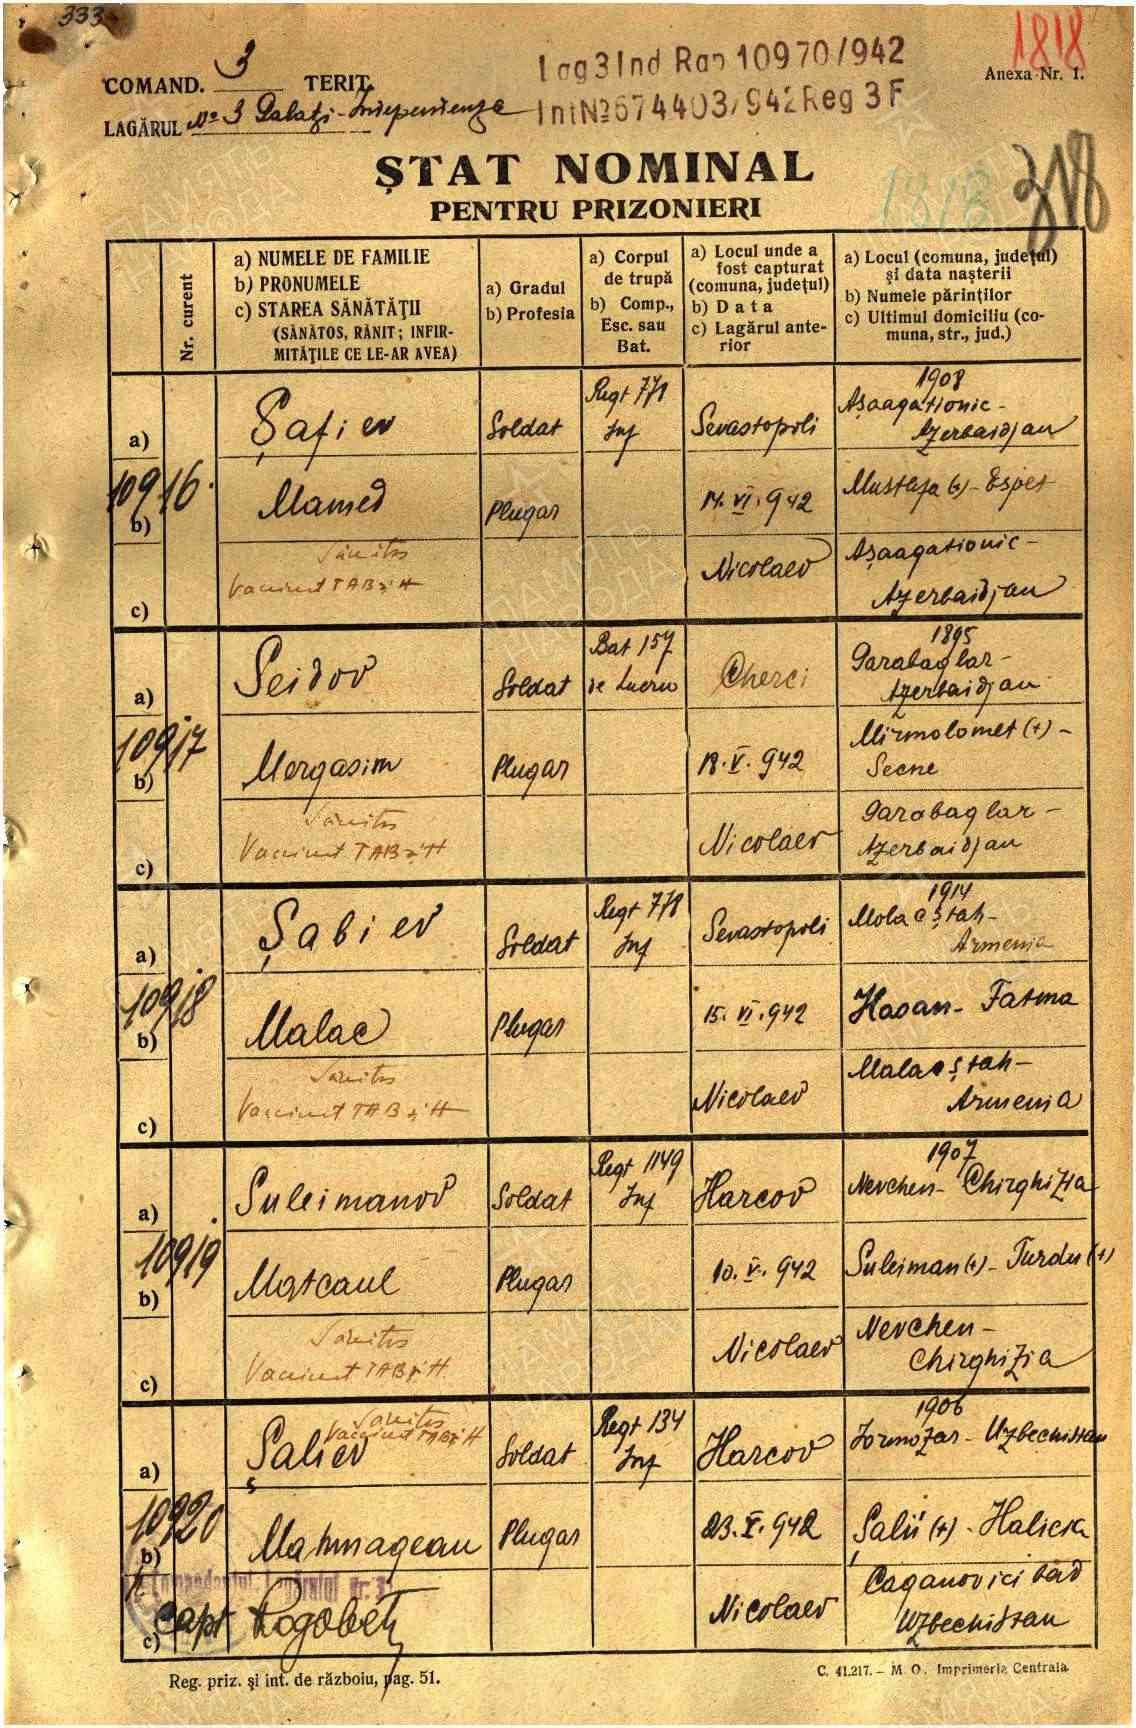 333
1818
COMAND. 3 TERIT.
Lag 3 Ind Rap 10970/942
Anexa Nr. 1.
LAGĂRUL No 3 Galaţi-Independenţa
Int № 674403/942 Reg 3 F
1818
318
ȘTAT NOMINAL
PENTRU PRIZONIERI
Nr. curent
a) NUMELE DE FAMILIE
b) PRONUMELE
c) STAREA SĂNĂTĂŢII
(SĂNĂTOS, RĂNIT; INFIR-
MITĂŢILE CE LE-AR AVEA)
a) Gradul
b) Profesia
a) Corpul
de trupă
b) Comp.,
Esc. sau
Bat.
a) Locul unde a
fost capturat
(comuna, judeţul)
b) Data
c) Lagărul ante-
rior
a) Locul (comuna, judeţul)
și data nașterii
b) Numele părinţilor
c) Ultimul domiciliu (co-
muna, str., jud.)
a) Șafiev Soldat Regt 771 Inf Sevastopoli 1908 Așaagationic- Azerbaidjan
10916.
b) Mamed Plugar 14.VI.942 Mustafa (+) - Espet
c) Sănătos Vaccinat TAB și H Nicolaev Așaagationic- Azerbaidjan
a) Seidov Soldat Bat 157 de Lucru Cherci 1895 Garabaglar- Azerbaidjan
10917
b) Mergasim Plugar 18.V.942 Mirmolomet (+) - Secne
c) Sănătos Vaccinat TAB și H Nicolaev Garabaglar- Azerbaidjan
a) Șabiev Soldat Regt 778 Inf Sevastopoli 1914 Molaeștah- Armenia
10918
b) Malac Plugar 15.VI.942 Hasan- Fatma
c) Sănătos Vaccinat TAB și H Nicolaev Malaeștah- Armenia
a) Suleimanov Soldat Regt 1149 Inf Harcov 1907 Nevchen- Chirghizia
10919
b) Matcaul Plugar 10.V.942 Suleiman (+) - Turdu (+)
c) Sănătos Vaccinat TAB și H. Nicolaev Nevchen- Chirghizia
Sănătos
Vaccinat TAB și H
a) Șaliev Soldat Regt 134 Inf Harcov 1906 Iormozar- Uzbechistan
10920
b) Mahmageau Plugar 23.V.942 Șalii (+) - Halicia
Comandantul Lagărului nr. 3
c) Capt Rogobete Nicolaev Caganovici bad Uzbechistan
Reg. priz. și int. de războiu, pag. 51.
C. 41.217. – M. O. Imprimeria Centrala
ПАМЯТЬ НАРОДА